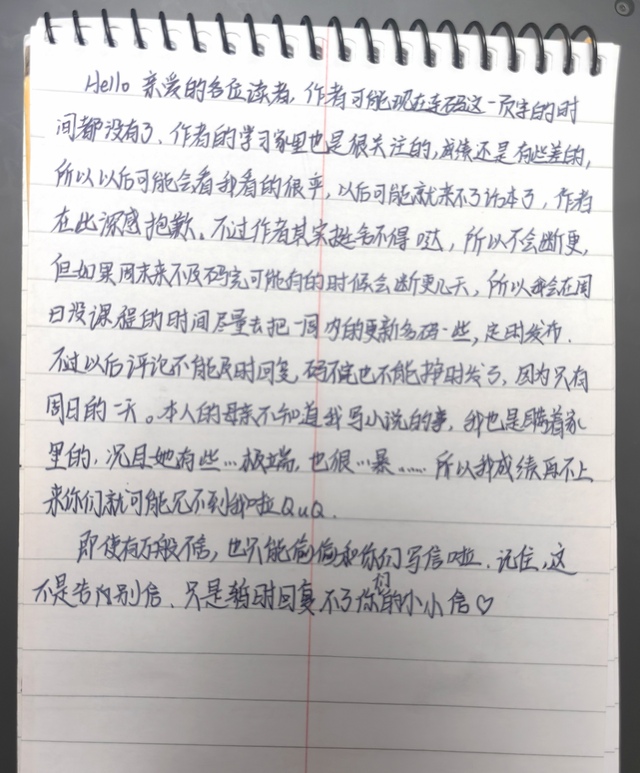 Hello 亲爱的各位读者,作者可能现在连码这一页字的时
间都没有了、作者的学习家里也是很关注的,成绩还是有些差的,
所以以后可能会看我看的很牢,以后可能就来不了话本了,作者
在此深感抱歉。不过作者其实挺舍不得哒,所以不会断更,
但如果周末来不及码完可能有的时候会断更几天,所以我会在周
日没课程的时间尽量去把一周内的更新多码一些,定时发布.
不过以后评论不能及时回复,码不完也不能按时发了,因为只有
周日的一天。本人的母亲不知道我写小说的事,我也是瞒着家
里的,况且她有些…极端,也很…暴…… 所以我成绩再不上
来你们就可能见不到我啦QuQ.
即使有万般不舍,也只能偷偷和你们写信啦.记住,这
不是告别信、只是暂时回复不了你们的小小信♡